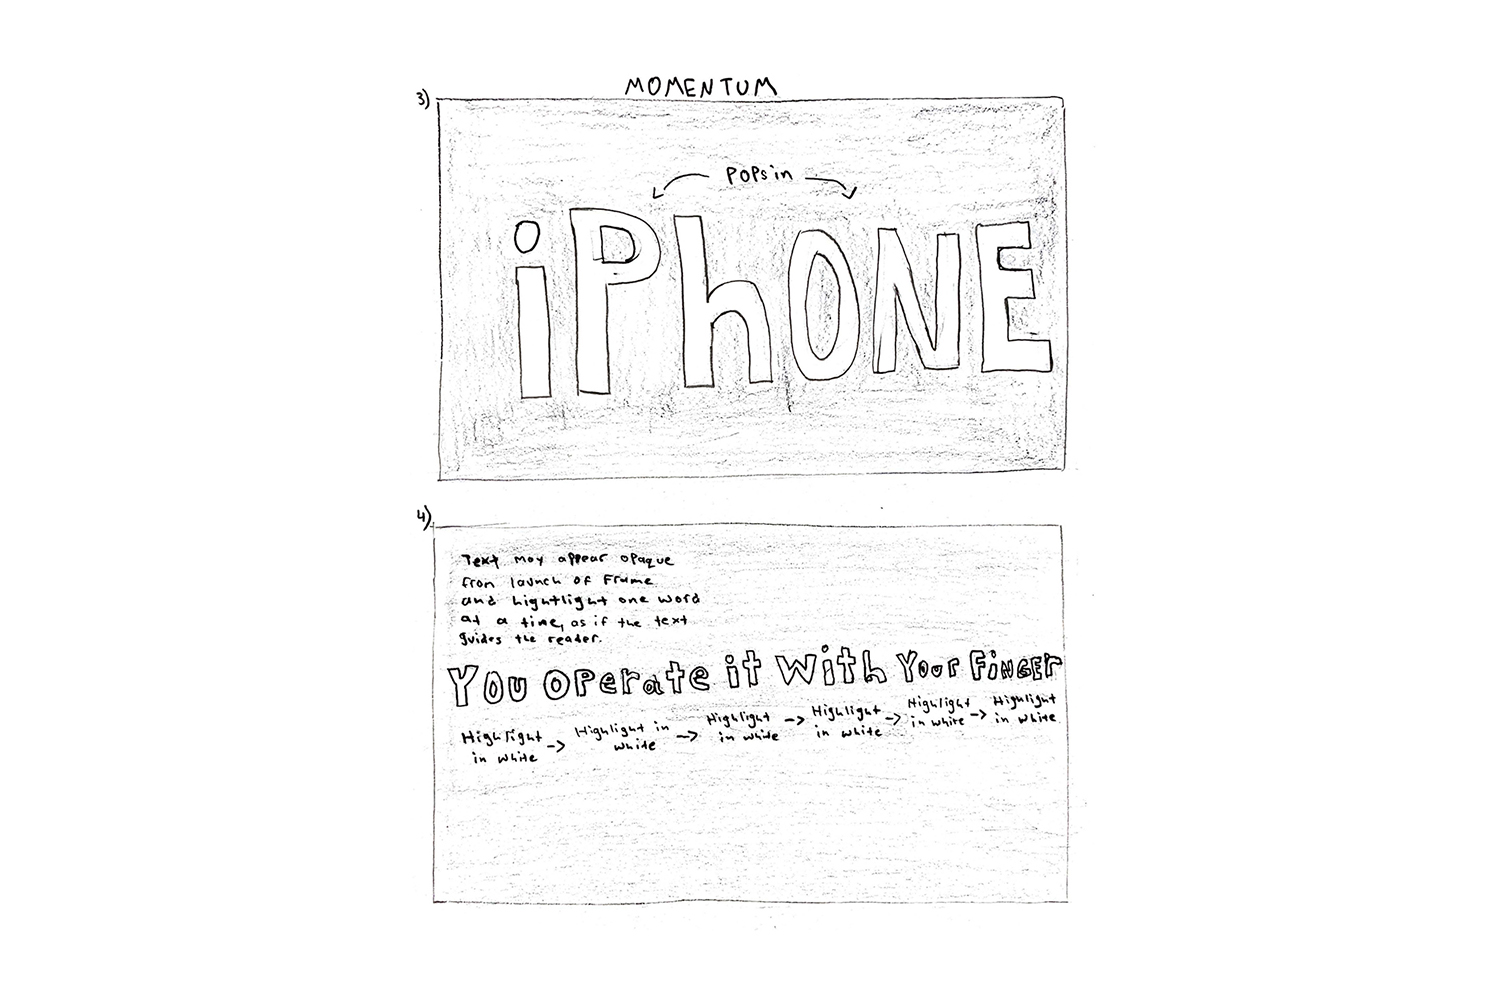 MOMENTUM
3)
Pops in
iPhONE
4)
Text may appear opaque
from launch of Frame
and hightlight one word
at a time, as if the text
guides the reader.
You Operate it With Your FiNGEr
Highlight in white -> Highlight in white -> Highlight in white -> Highlight in white -> Highlight in white -> Highlight in white